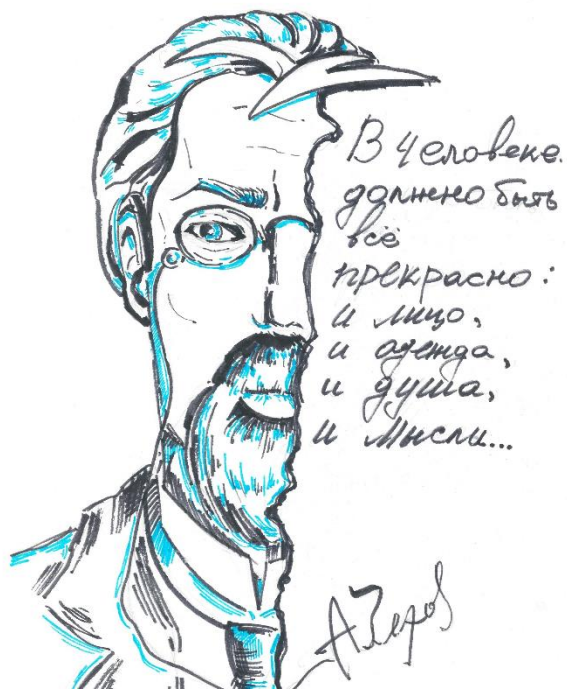 В человеке
должно быть
всё
прекрасно:
и лицо,
и одежда,
и душа,
и мысли...
АЧехов